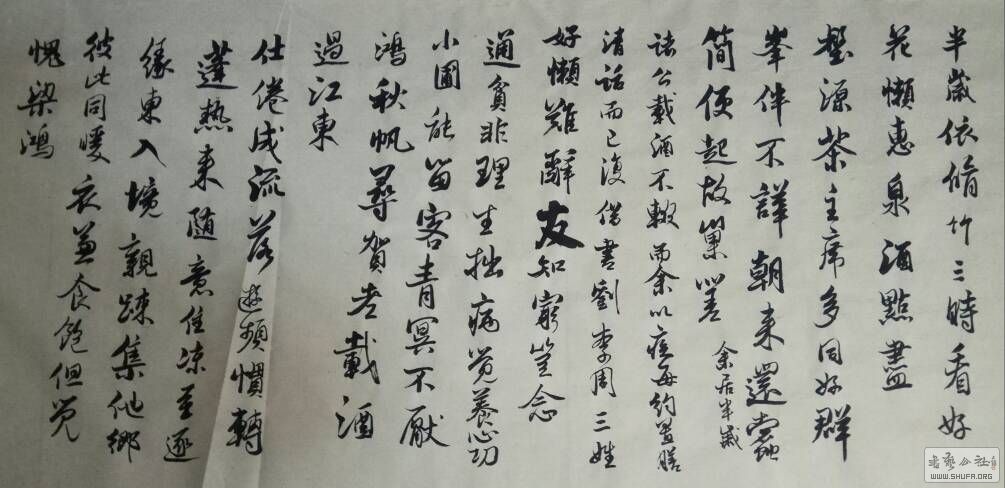 半歲依脩竹三時看好
花懶惠泉酒點盡
壑源茶主席多同好群
峯伴不譁朝来還蠹
簡便起故巢嗟余居半歲
諸公載酒不輟而余以疾每約置膳
清話而已復借書劉李周三姓
好懶難辭友知窮豈念
通貧非理生拙病覚養心功
小圃能留客青冥不厭
鴻秋帆尋賀老載酒
過江東
仕倦成流落遊頻慣轉
蓬熱来随意住凉至逐
緣東入境親踈集他鄉
彼此同暖衣兼食飽但覚
愧梁鴻
書藝公社
WWW.SHUFA.ORG